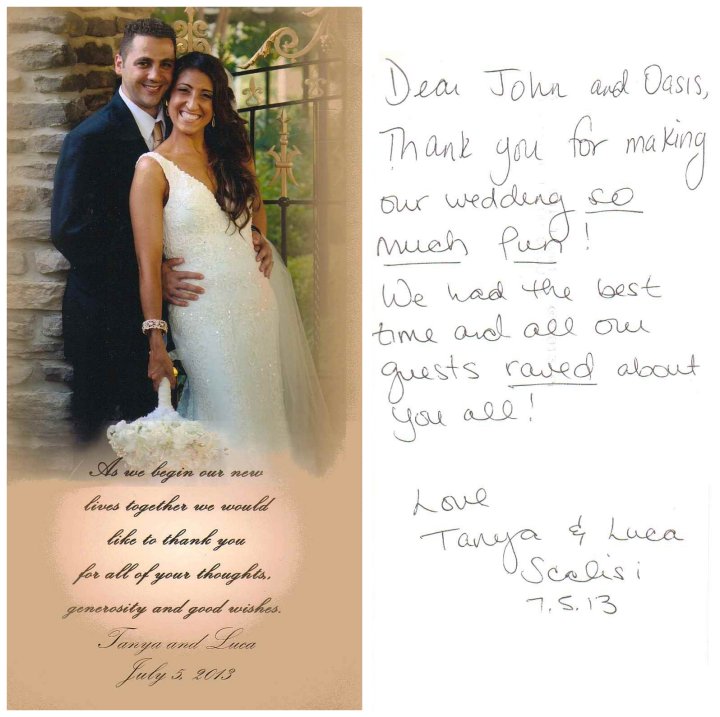 As we begin our new
lives together we would
like to thank you
for all of your thoughts,
generosity and good wishes.
Tanya and Luca
July 5, 2013
Dear John and Oasis,
Thank you for making
our wedding so
much fun!
We had the best
time and all our
guests raved about
you all!
Love
Tanya & Luca
Scalisi
7.5.13